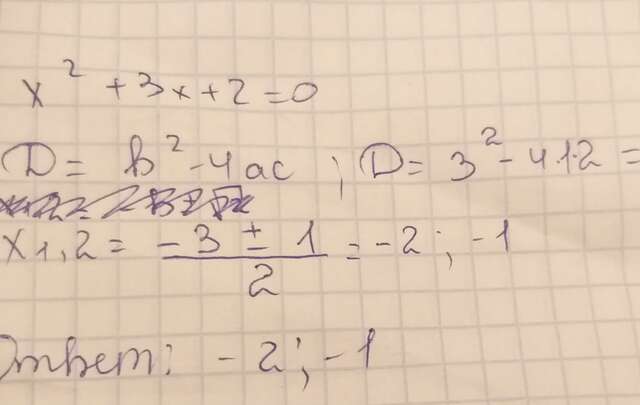 x² + 3x + 2 = 0
D = b² - 4ac ; D = 3² - 4·1·2 =
x1,2 = (-3 ± 1)/2 = -2 ; -1
Ответ: -2 ; -1